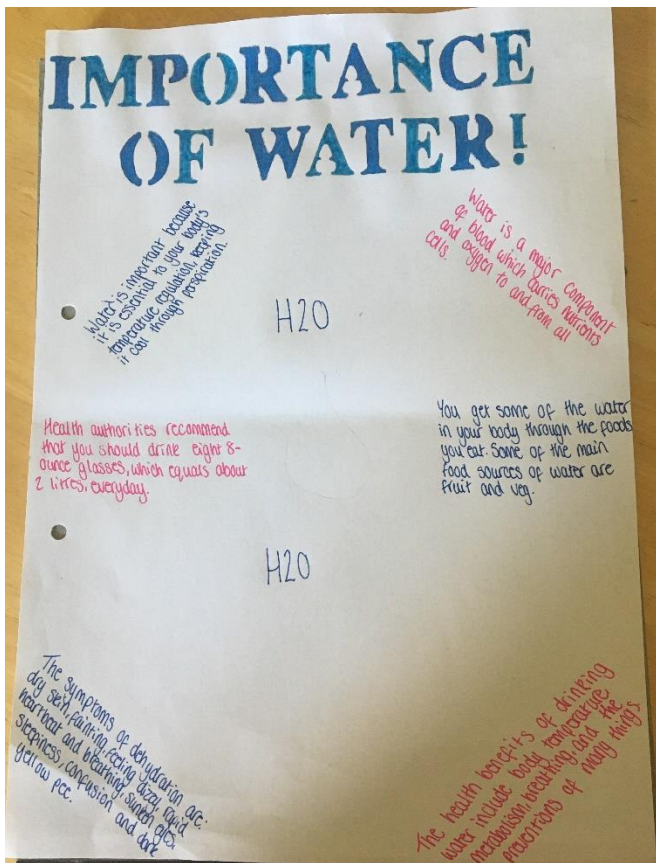 IMPORTANCE
OF WATER!
Water is important because
it is essential to your body's
temperature regulation, keeping
it cool through perspiration.
Water is a major component
of blood which carries nutrients
and oxygen to and from all
cells.
H20
Health authorities recommend
that you should drink eight 8-
ounce glasses, which equals about
2 litres, everyday.
You get some of the water
in your body through the foods
you eat. Some of the main
food sources of water are
fruit and veg.
H20
The symptoms of dehydration are:
dry skin, fainting, feeling dizzy, rapid
heartbeat and breathing, sunken eyes,
sleepiness, confusion and dark
yellow pee.
The health benefits of drinking
water include body temperature
metabolism, breathing, and the
preventions of many things.